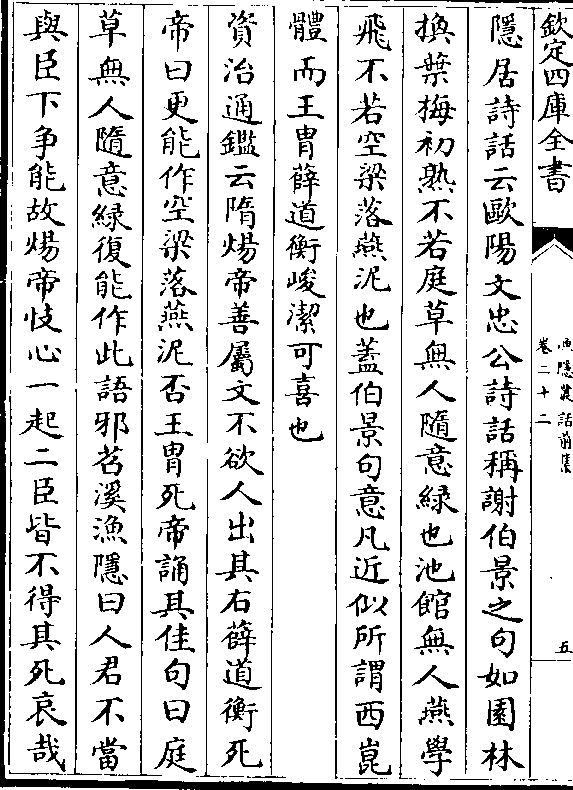 欽定四庫全書
漁隱叢話前集
卷二十二
五
隱居詩話云歐陽文忠公詩話稱謝伯景之句如園林
換葉梅初熟不若庭草無人隨意綠也池館無人燕學
飛不若空梁落燕泥也蓋伯景句意凡近似所謂西崑
體而王胄薛道衡峻潔可喜也
資治通鑑云隋煬帝善屬文不欲人出其右薛道衡死
帝曰更能作空梁落燕泥否王胄死帝誦其佳句曰庭
草無人隨意緑復能作此語邪苕溪漁隱曰人君不當
與臣下争能故煬帝忮心一起二臣皆不得其死哀哉